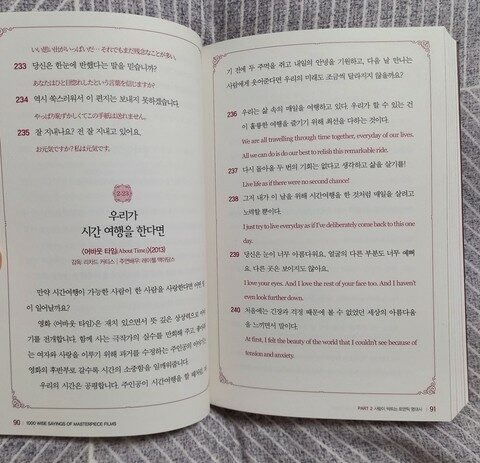 いい思い出がいっぱいだ… それでもまだ残念なことが多い。
233 당신은 한눈에 반했다는 말을 믿습니까?
あなたはひと目惚れしたという言葉を信じますか?
234 역시 쑥스러워서 이 편지는 보내지 못하겠습니다.
やっぱり恥ずかしくてこの手紙は送れません。
235 잘 지내나요? 전 잘 지내고 있어요.
お元気ですか? 私は元気です。
2-23
우리가
시간 여행을 한다면
〈어바웃 타임(About Time)〉(2013)
감독: 리차드 커티스 | 주연배우: 레이첼 맥아담스
만약 시간여행이 가능한 사람이 한 사람을 사랑한다면 어떤 일
이 일어날까요?
영화 〈어바웃 타임〉은 재치 있으면서 뜻 깊은 상상력으로 이야
기를 전개합니다. 함께 사는 극작가의 실수를 만회해 주고, 좋아하
는 여자와 사랑을 이루기 위해 과거를 수정하는 주인공의 이야기
영화의 후반부로 갈수록 시간의 소중함을 일깨워줍니다.
우리의 시간은 공평합니다. 주인공이 시간여행을 할 때처럼
90 1000 WISE SAYINGS OF MASTERPIECE FILMS
기 전에 두 주먹을 쥐고 내일의 안녕을 기원하고, 다음 날 만나는
사람에게 웃어준다면 우리의 미래도 조금씩 달라지지 않을까요?
236 우리는 삶 속의 매일을 여행하고 있다. 우리가 할 수 있는 건
이 훌륭한 여행을 즐기기 위해 최선을 다하는 것이다.
We are all travelling through time together, everyday of our lives.
All we can do is do our best to relish this remarkable ride.
237 다시 돌아올 두 번의 기회는 없다고 생각하고 삶을 살기를!
Live life as if there were no second chance!
238 그저 내가 이 날을 위해 시간여행을 한 것처럼 매일을 살려고
노력할 뿐이다.
I just try to live everyday as if I've deliberately come back to this one
day.
239 당신은 눈이 너무 아름다워요. 얼굴의 다른 부분도 너무 예뻐
요. 다른 곳은 보이지도 않아요.
I love your eyes. And I love the rest of your face too. And I haven't
even look further down.
240 처음에는 긴장과 걱정 때문에 볼 수 없었던 세상의 아름다움
을 느끼면서 말이다.
At first, I felt the beauty of the world that I couldn't see because of
tension and anxiety.
PART 2 사랑이 싹트는 로맨틱 명대사 91